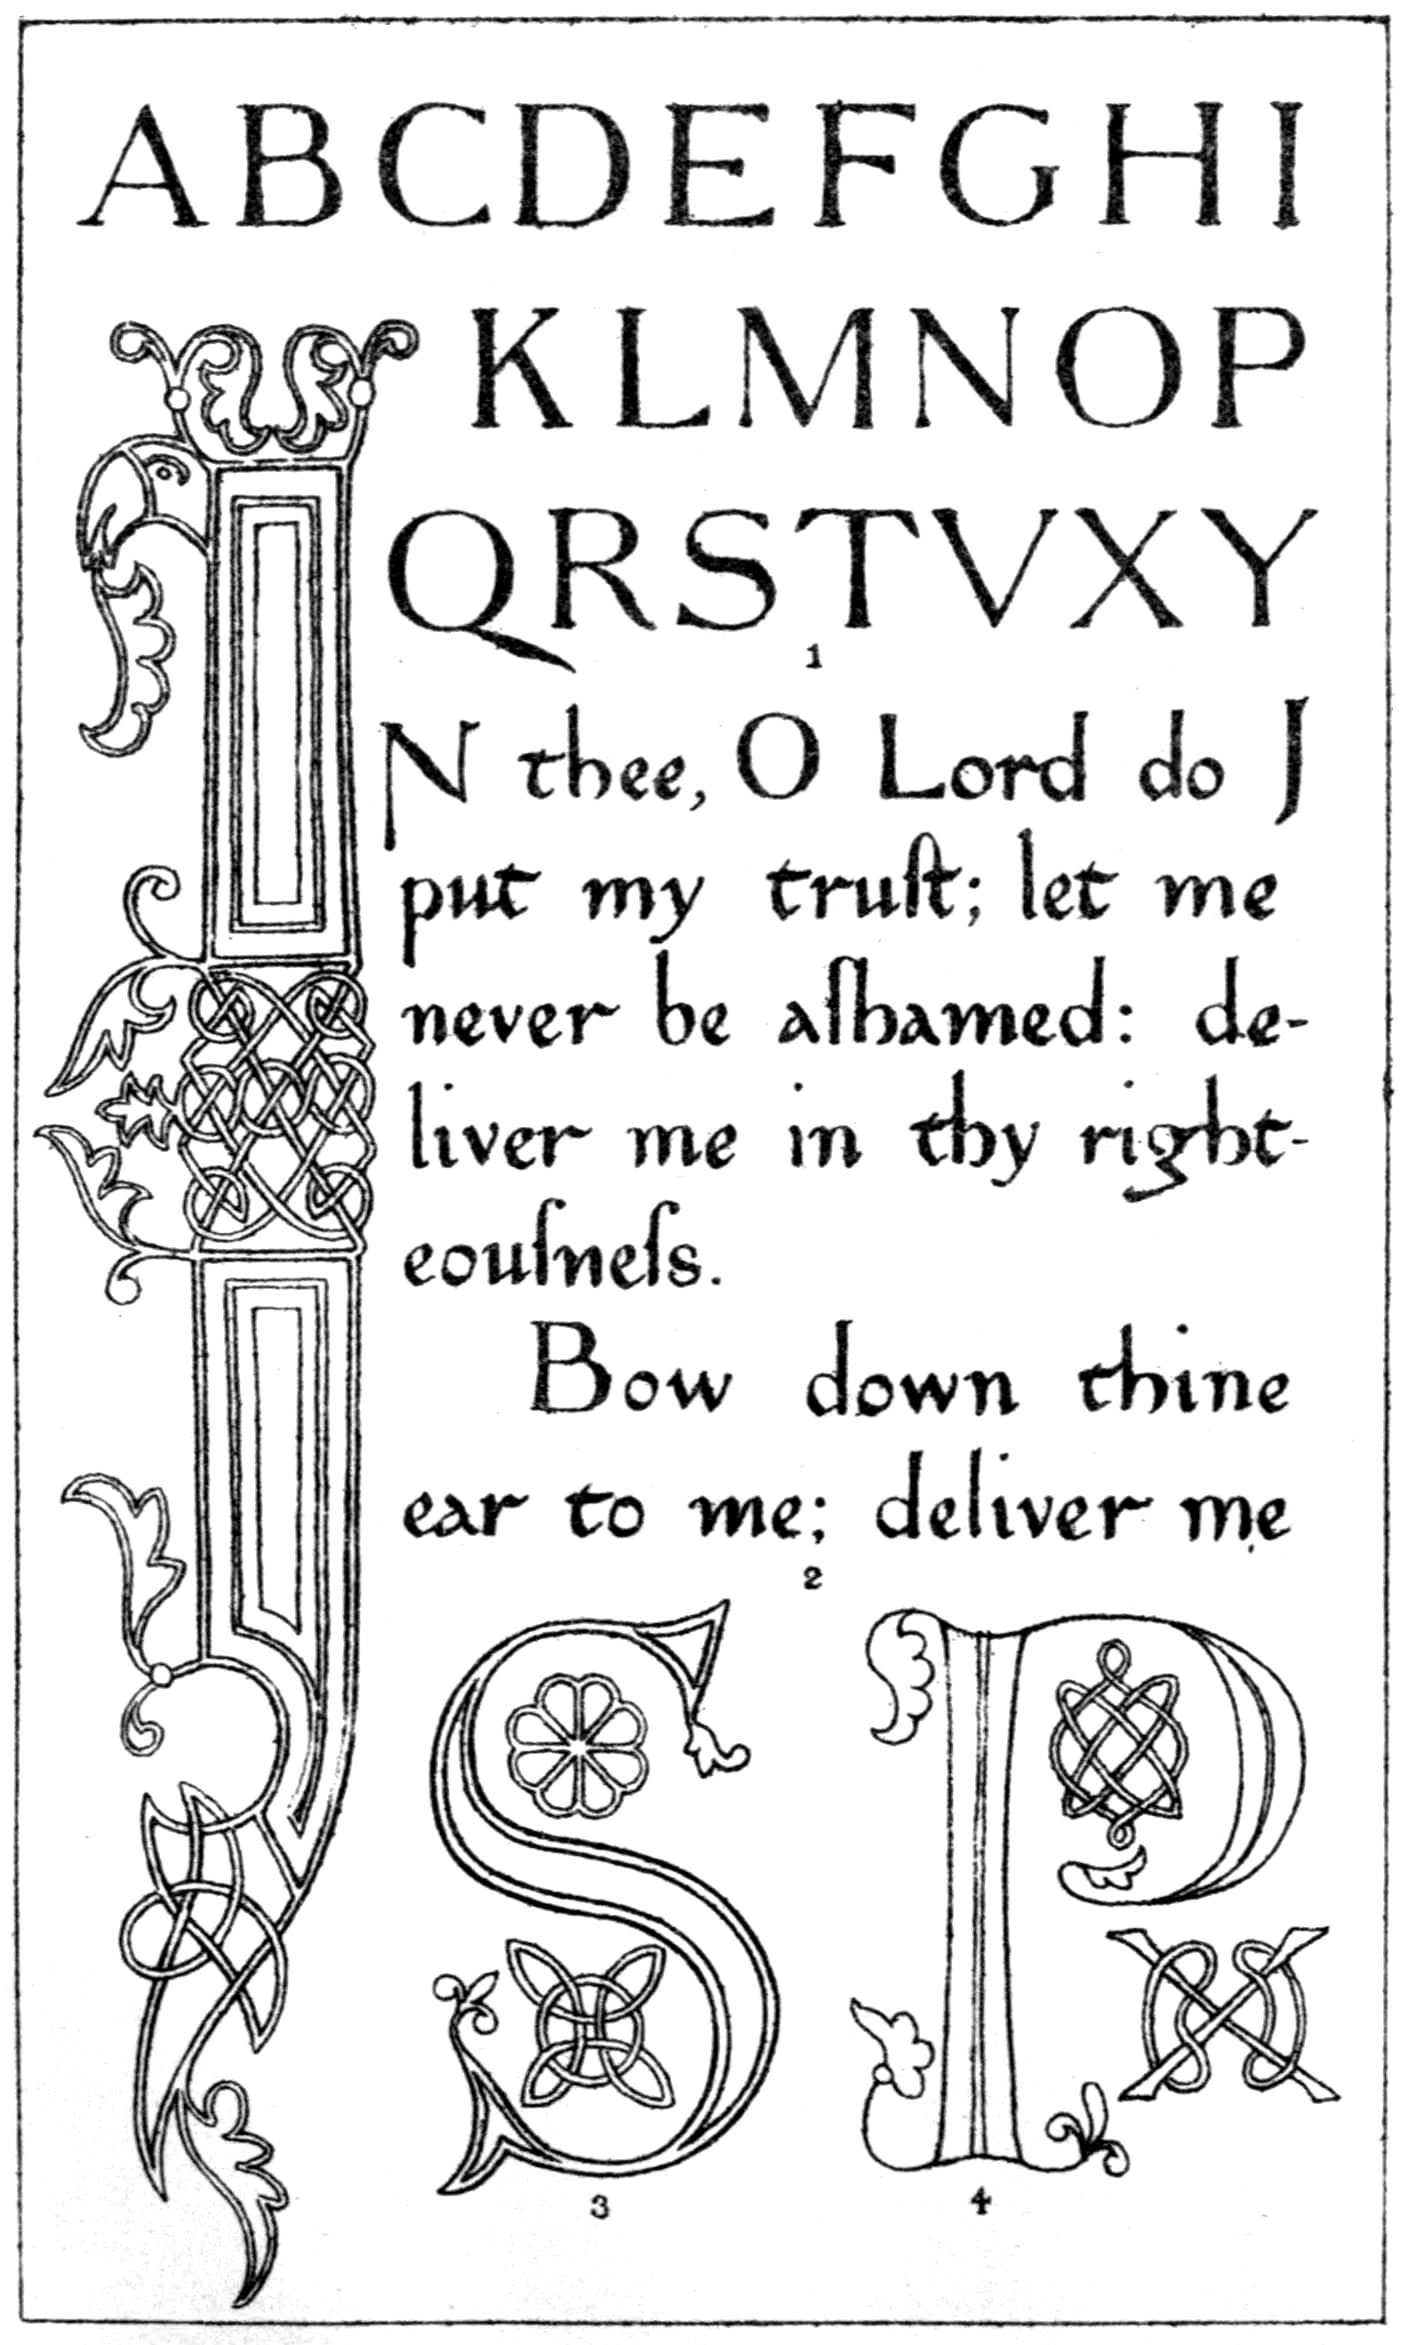 ABCDEFGHI
KLMNOP
QRSTVXY
1
IN thee, O Lord do I
put my truſt; let me
never be aſhamed: de-
liver me in thy right-
eouſneſs.
Bow down thine
ear to me; deliver me
2
S P
3 4